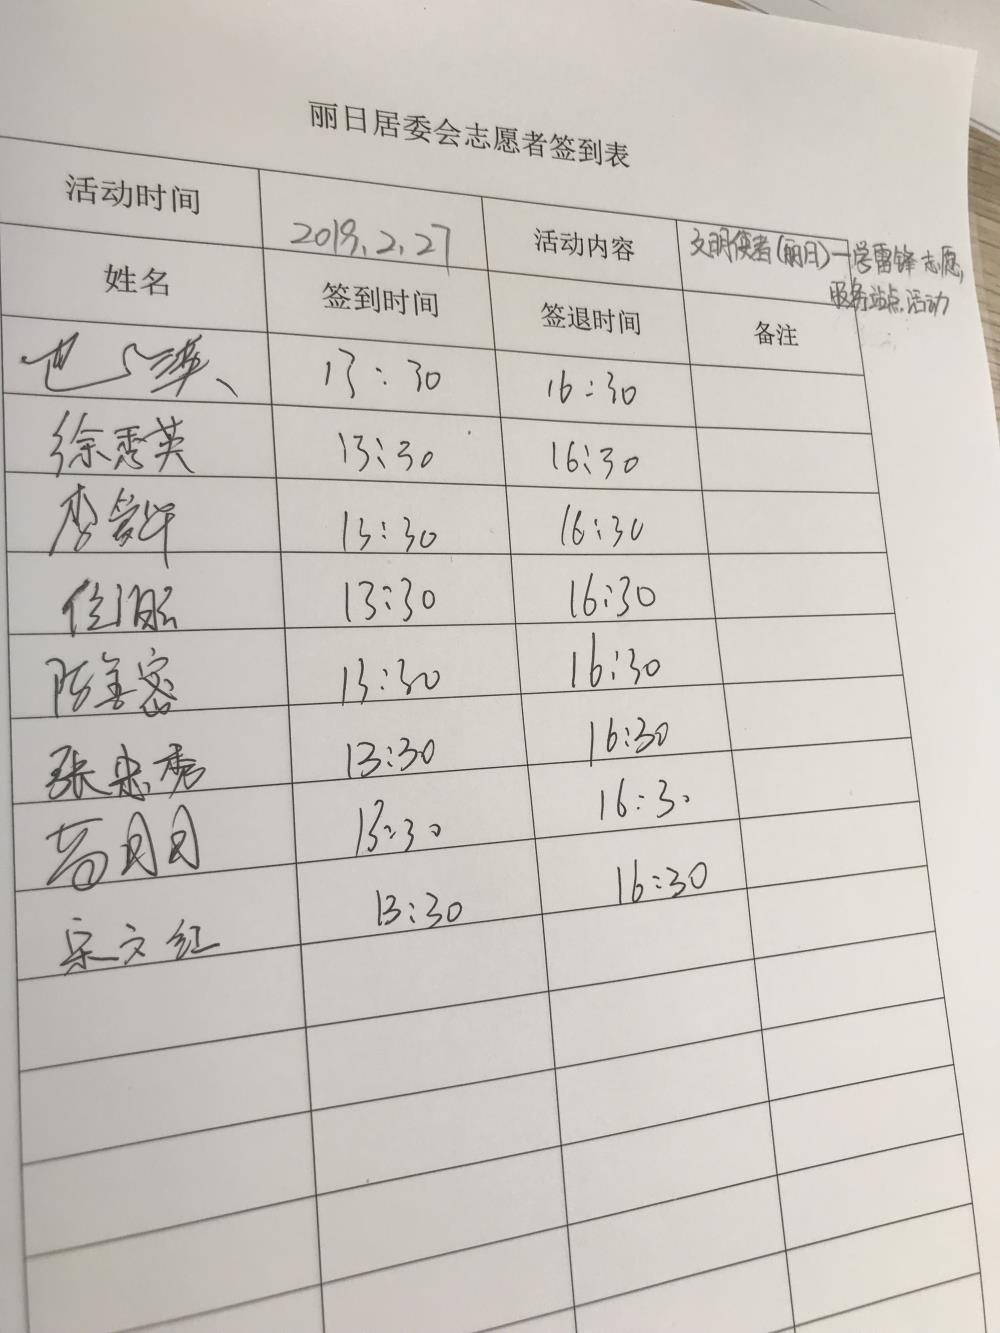 丽日居委会志愿者签到表
活动时间 2019.2.27 活动内容 文明使者(丽日)—学雷锋志愿服务站点活动
姓名 签到时间 签退时间 备注
13:30 16:30
徐秀英 13:30 16:30
李爱华 13:30 16:30
13:30 16:30
陈善容 13:30 16:30
张忠秀 13:30 16:30
13:30 16:30
宋文红 13:30 16:30